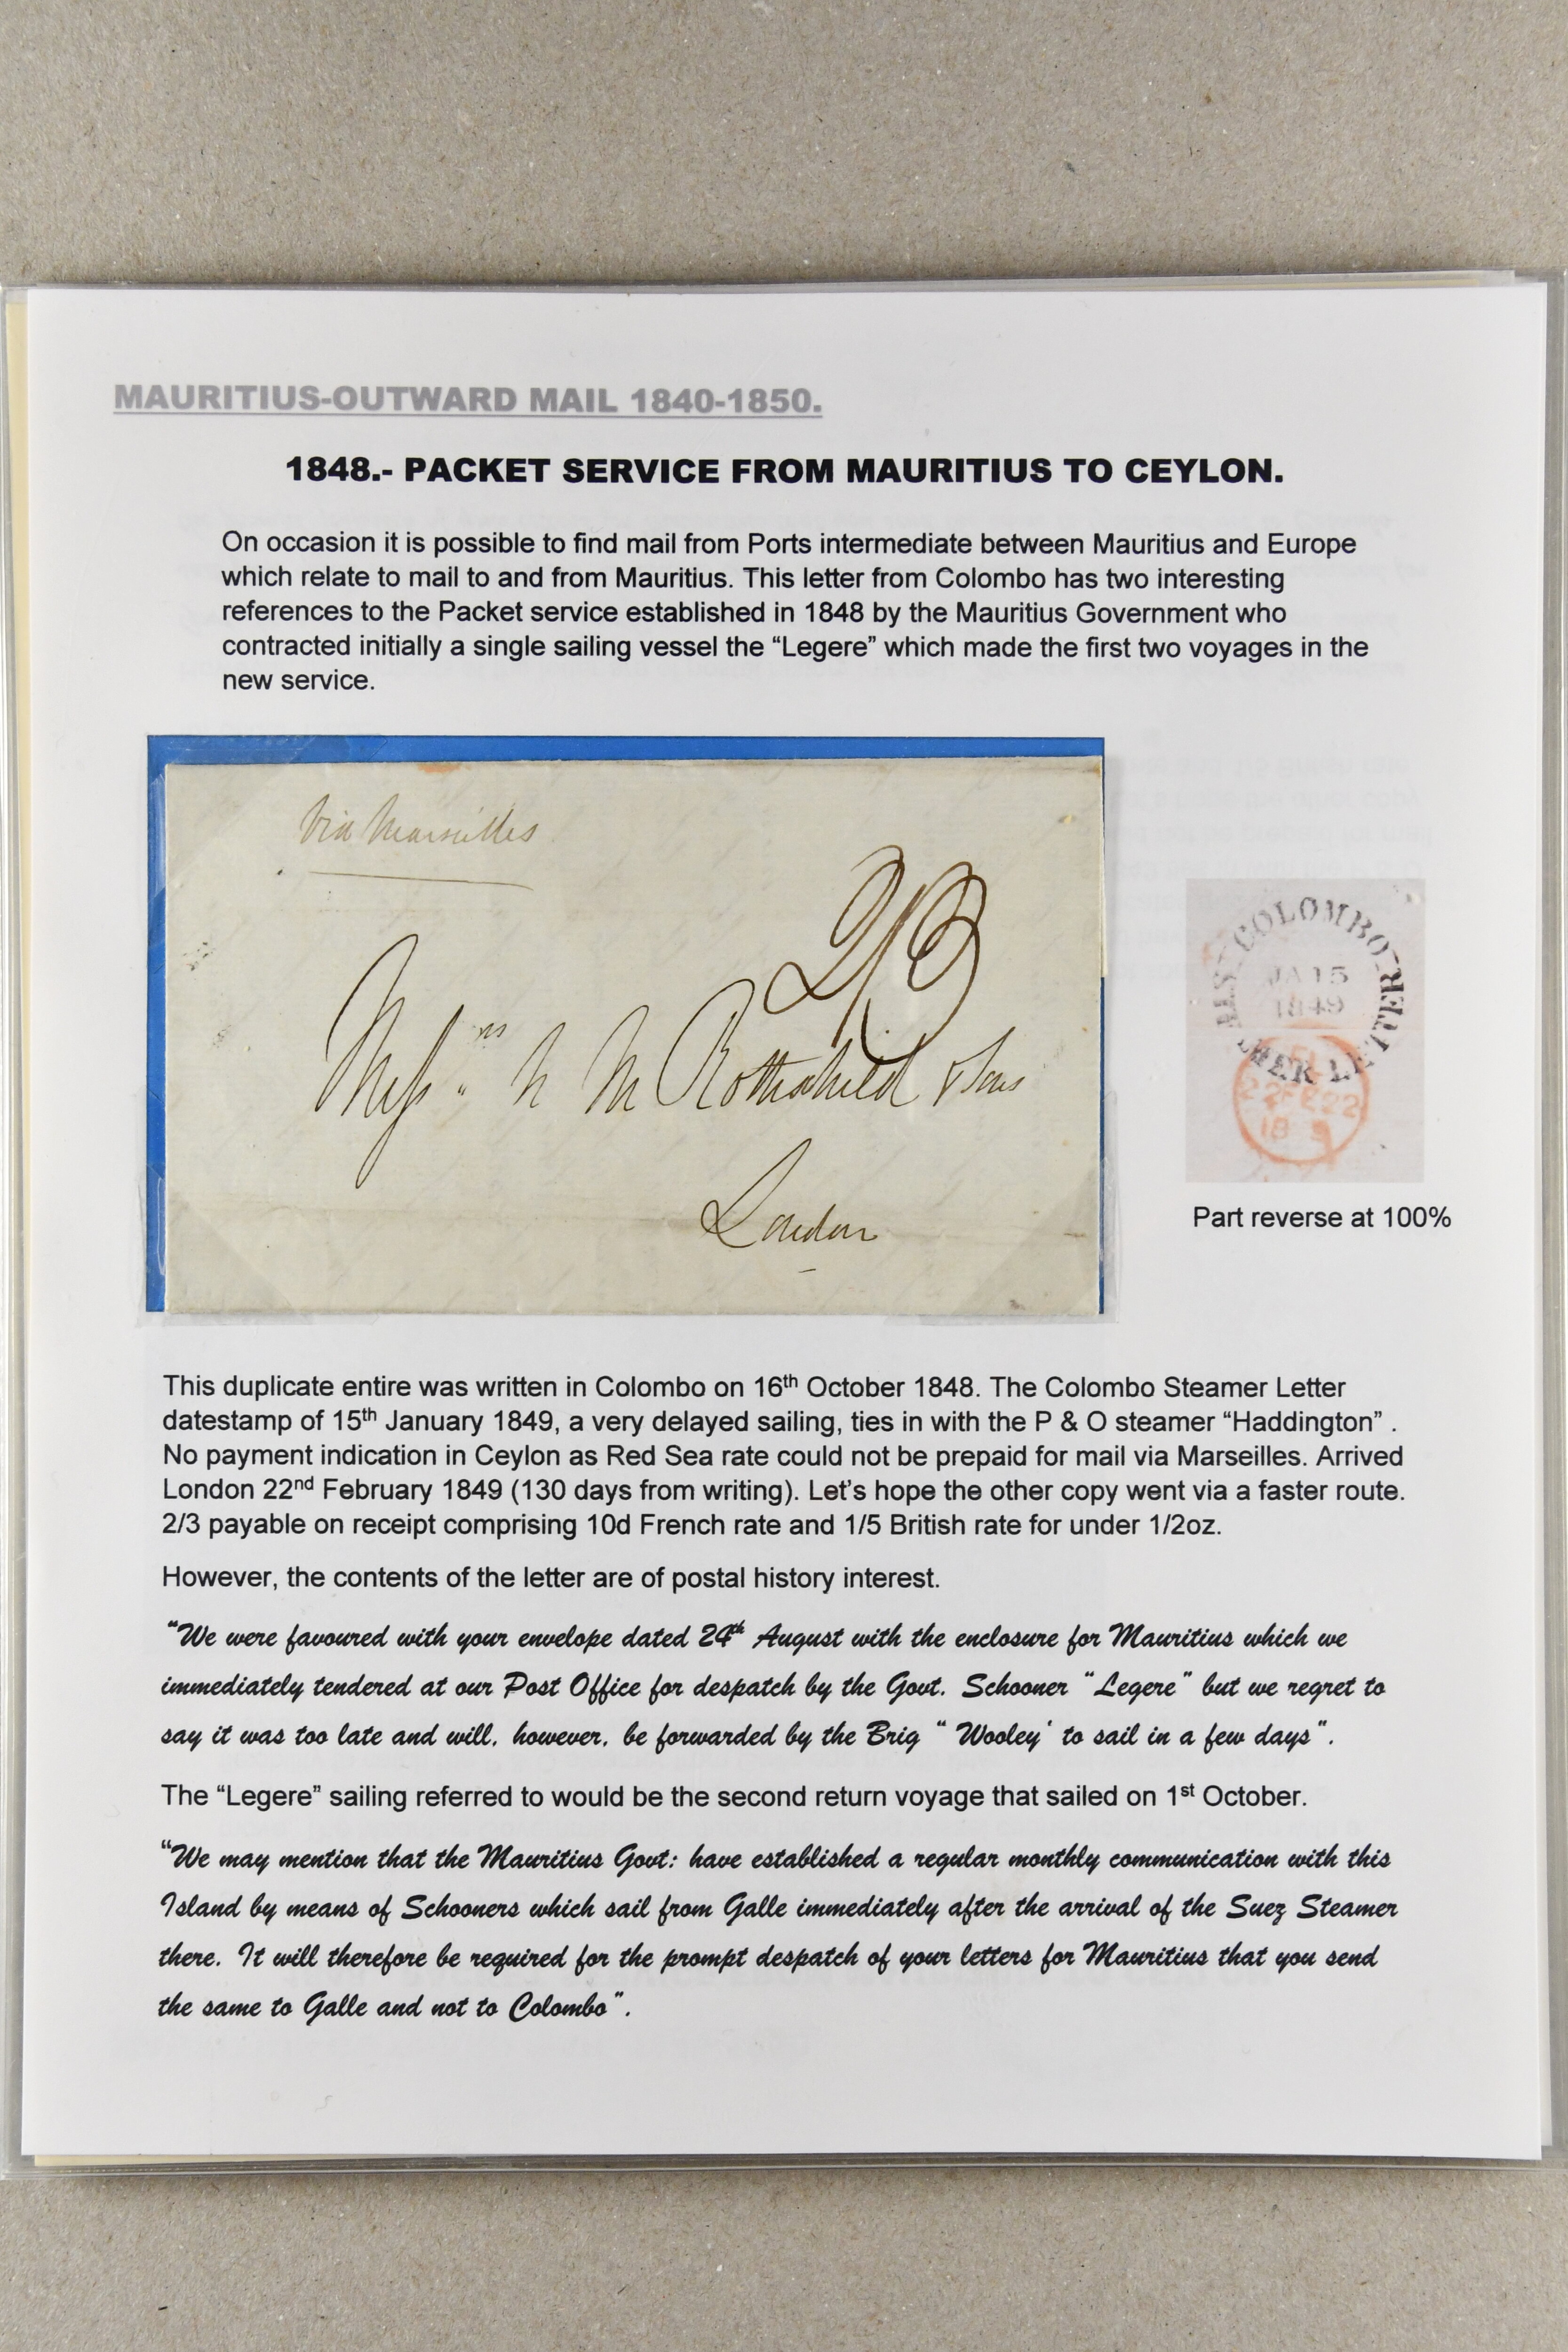 MAURITIUS-OUTWARD MAIL 1840-1850.
1848.- PACKET SERVICE FROM MAURITIUS TO CEYLON.
On occasion it is possible to find mail from Ports intermediate between Mauritius and Europe
which relate to mail to and from Mauritius. This letter from Colombo has two interesting
references to the Packet service established in 1848 by the Mauritius Government who
contracted initially a single sailing vessel the “Legere” which made the first two voyages in the
new service.
Via Marseilles
2/3
Messrs N M Rothschild & Sons
London
COLOMBO
JA 15
1849
22 FE 22
Part reverse at 100%
This duplicate entire was written in Colombo on 16th October 1848. The Colombo Steamer Letter
datestamp of 15th January 1849, a very delayed sailing, ties in with the P & O steamer “Haddington” .
No payment indication in Ceylon as Red Sea rate could not be prepaid for mail via Marseilles. Arrived
London 22nd February 1849 (130 days from writing). Let’s hope the other copy went via a faster route.
2/3 payable on receipt comprising 10d French rate and 1/5 British rate for under 1/2oz.
However, the contents of the letter are of postal history interest.
“We were favoured with your envelope dated 24th August with the enclosure for Mauritius which we
immediately tendered at our Post Office for despatch by the Govt. Schooner “Legere” but we regret to
say it was too late and will, however, be forwarded by the Brig “ Wooley‘ to sail in a few days”.
The “Legere” sailing referred to would be the second return voyage that sailed on 1st October.
“We may mention that the Mauritius Govt: have established a regular monthly communication with this
Island by means of Schooners which sail from Galle immediately after the arrival of the Suez Steamer
there. It will therefore be required for the prompt despatch of your letters for Mauritius that you send
the same to Galle and not to Colombo”.